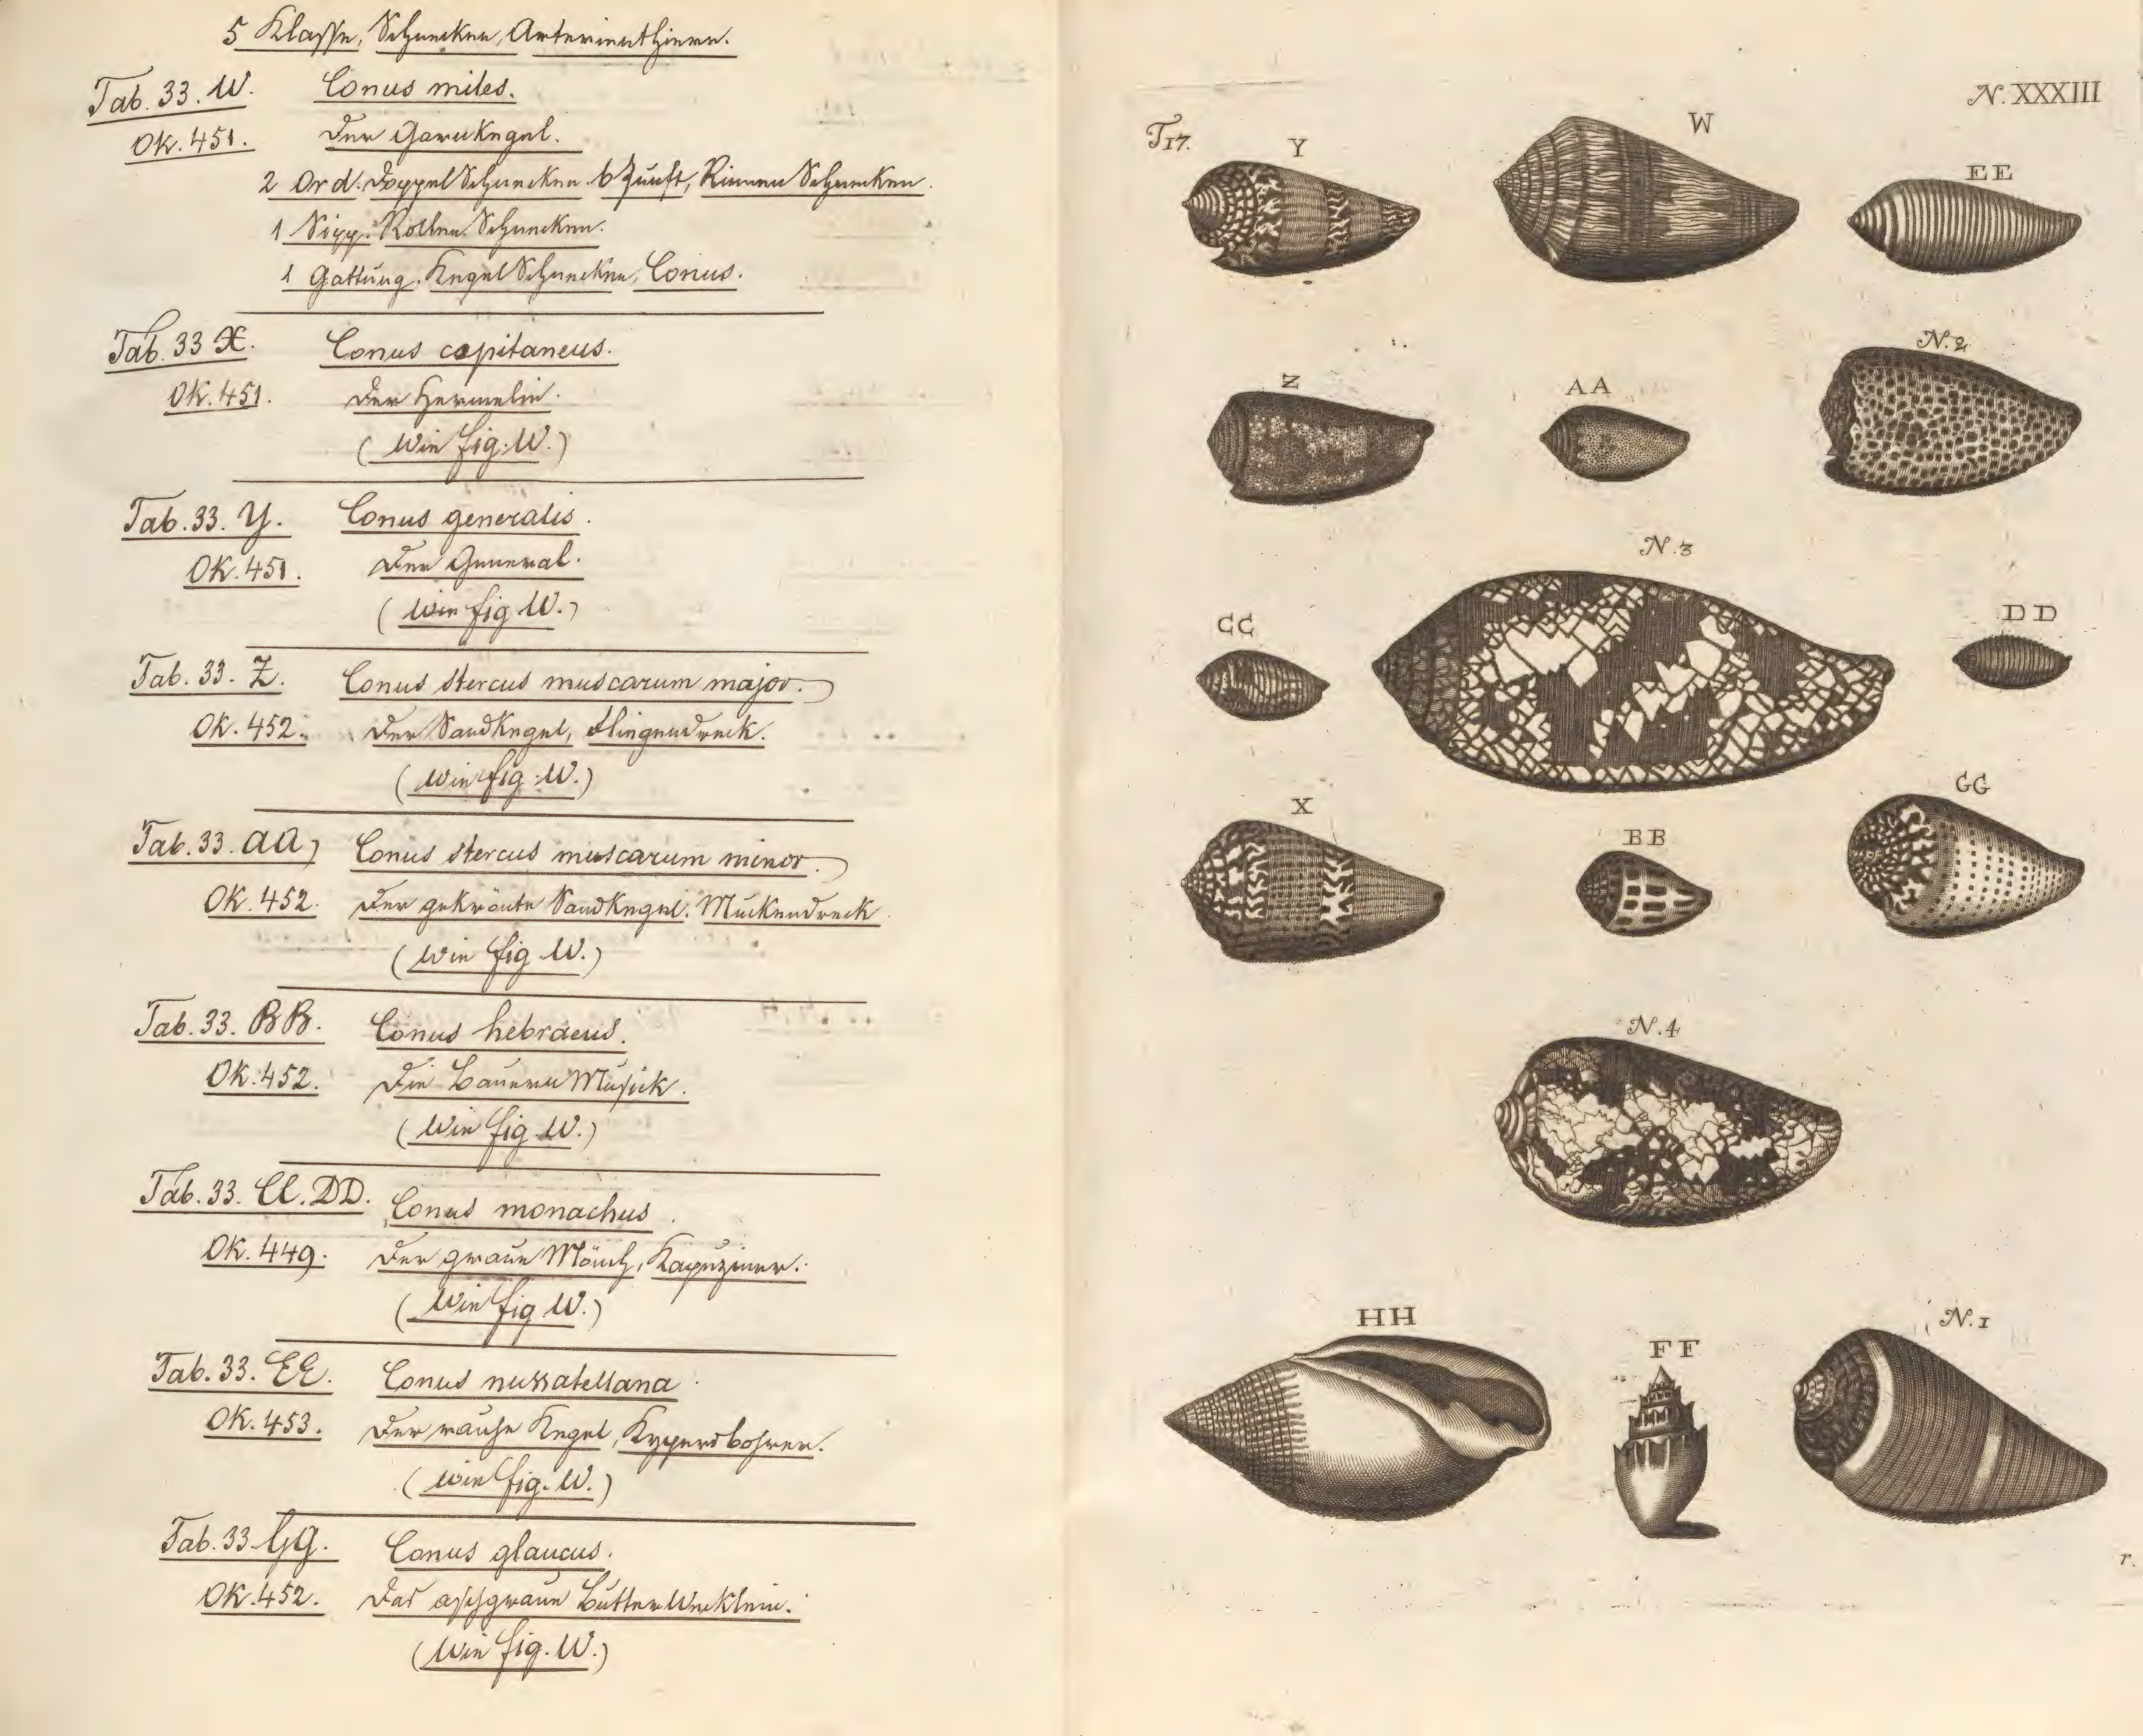 5 Klasse, Schnecken, Arterienthiere.
Tab. 33. W. Conus miles.
Ok. 451. Der Garnkegel.
2 Ord. Doppel Schnecken. 6 Zunft, Rinnen Schnecken.
1 Sipp. Rollen Schnecken.
1 Gattung, Kegel Schnecken, Conus.
Tab. 33 X. Conus capitaneus.
Ok. 451. Der Hermelin.
(Wie fig. W.)
Tab. 33. Y. Conus generalis.
Ok. 451. Der General.
(Wie fig W.)
Tab. 33. Z. Conus stercus muscarum major.
Ok. 452. Der Sandkegel, Fliegendreck.
(Wie fig. W.)
Tab. 33. aa, Conus stercus muscarum minor.
Ok. 452. Der gekrönte Sandkegel. Muckendreck
(Wie fig. W.)
Tab. 33. BB. Conus hebraeus.
Ok. 452. Die Bauern Musick.
(Wie fig. W.)
Tab. 33. CC. DD. Conus monachus.
Ok. 449. Der graue Mönch, Kapuziner.
(Wie fig W.)
Tab. 33. EE. Conus nussatellana
Ok. 453. Der rauhe Kegel, Kypersbohrer.
(Wie fig. W.)
Tab. 33 GG. Conus glaucus.
Ok. 452. Das aschgraue Butter Wecklein.
(Wie fig. W.)
N. XXXIII
T17.
Y
W
EE
Z
AA
N. 2
N. 3
CC
DD
X
BB
GG
N. 4
HH
FF
N. 1
r.